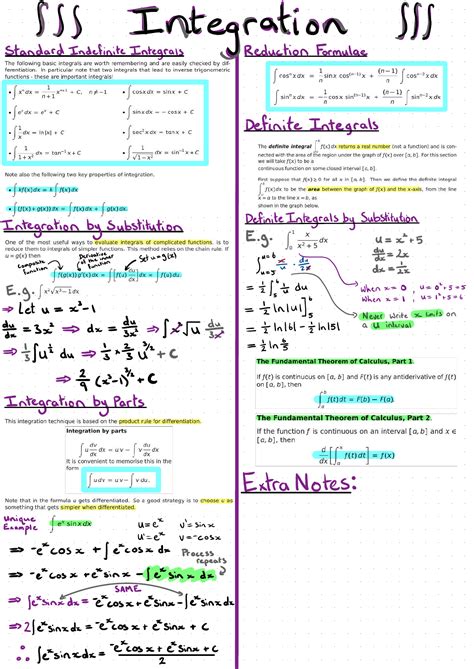 ∫∫∫ Integration ∫∫∫
Standard Indefinite Integrals
The following basic integrals are worth remembering and are easily checked by dif-
ferentiation. In particular note that two integrals that lead to inverse trigonometric
functions - these are important integrals!
• ∫ xⁿ dx = 1/(n+1) xⁿ⁺¹ + C, n ≠ −1 • ∫ cos x dx = sin x + C
• ∫ eˣ dx = eˣ + C • ∫ sin x dx = − cos x + C
• ∫ 1/x dx = ln|x| + C • ∫ sec² x dx = tan x + C
• ∫ 1/(1+x²) dx = tan⁻¹ x + C • ∫ 1/√(1−x²) dx = sin⁻¹ x + C
Note also the following two key properties of integration.
• ∫ kf(x) dx = k ∫ f(x) dx
• ∫ (f(x) + g(x)) dx = ∫ f(x) dx + ∫ g(x) dx.
Integration by Substitution
One of the most useful ways to evaluate integrals of complicated functions is to
reduce them to integrals of simpler functions. This method relies on the chain rule. If
u = g(x) then
Composite function
Derivative of the inner function
Set u = g(x)
∫ f(g(x)) g'(x) dx = ∫ f(u) du/dx dx = ∫ f(u) du
E.g. ∫ x²√(x³−1) dx
⇒ Let u = x³−1
du/dx = 3x² ⇒ dx = du/3x² ⇒ ∫ x²√u du/3x²
⇒ 1/3 ∫ u^(1/2) du ⇒ 1/3 × 2/3 u^(3/2) + C
⇒ 2/9 (x³−1)^(3/2) + C
Integration by Parts
This integration technique is based on the product rule for differentiation.
Integration by parts
∫ u dv/dx dx = uv − ∫ v du/dx dx
It is convenient to memorise this in the
form
∫ u dv = uv − ∫ v du.
Note that in the formula u gets differentiated. So a good strategy is to choose u as
something that gets simpler when differentiated.
Unique Example ∫ eˣ sin x dx
u = eˣ v' = sin x
u' = eˣ v = −cos x
⇒ −eˣ cos x + ∫ eˣ cos x dx
Process repeats
⇒ −eˣ cos x + eˣ sin x − ∫ eˣ sin x dx
SAME
⇒ ∫ eˣ sin x dx = −eˣ cos x + eˣ sin x − ∫ eˣ sin x dx
⇒ 2∫ eˣ sin x dx = −eˣ cos x + eˣ sin x + C
∴ ∫ eˣ sin x dx = (−eˣ cos x + eˣ sin x + C)/2
Reduction Formulae
∫ cosⁿ x dx = 1/n sin x cos⁽ⁿ⁻¹⁾ x + (n−1)/n ∫ cosⁿ⁻² x dx
∫ sinⁿ x dx = −1/n cos x sin⁽ⁿ⁻¹⁾ x + (n−1)/n ∫ sinⁿ⁻² x dx
Definite Integrals
The definite integral ∫ₐᵇ f(x) dx returns a real number (not a function) and is con-
nected with the area of the region under the graph of f(x) over [a, b]. For this section
we will take f(x) to be a
continuous function on some closed interval [a, b].
First suppose that f(x) ≥ 0 for all x in [a, b]. Then we define the definite integral
∫ₐᵇ f(x) dx to be the area between the graph of f(x) and the x-axis, from the line
x = a to the line x = b, as
shown in the graph below.
Definite Integrals by Substitution
E.g. ∫₀¹ x/(x²+5) dx
u = x²+5
du/dx = 2x
dx = du/2x
When x = 0 u = 0²+5 = 5
When x = 1, u = 1²+5 = 6
u=6
u=5
∫ x/u · du/2x
= 1/2 ∫₅⁶ 1/u du
= 1/2 ln|u| ]₅⁶
= 1/2 ln|6| − 1/2 ln|5|
= 1/2 ln 6/5
Never write x limits on
a u interval
The Fundamental Theorem of Calculus, Part 1.
If f(t) is continuous on [a, b] and F(t) is any antiderivative of f(t)
on [a, b], then
∫ₐᵇ f(t) dt = F(b) − F(a).
The Fundamental Theorem of Calculus, Part 2.
If the function f is continuous on an interval [a, b] and x ∈
[a, b], then
d/dx [∫ₐˣ f(t) dt] = f(x)
Extra Notes: